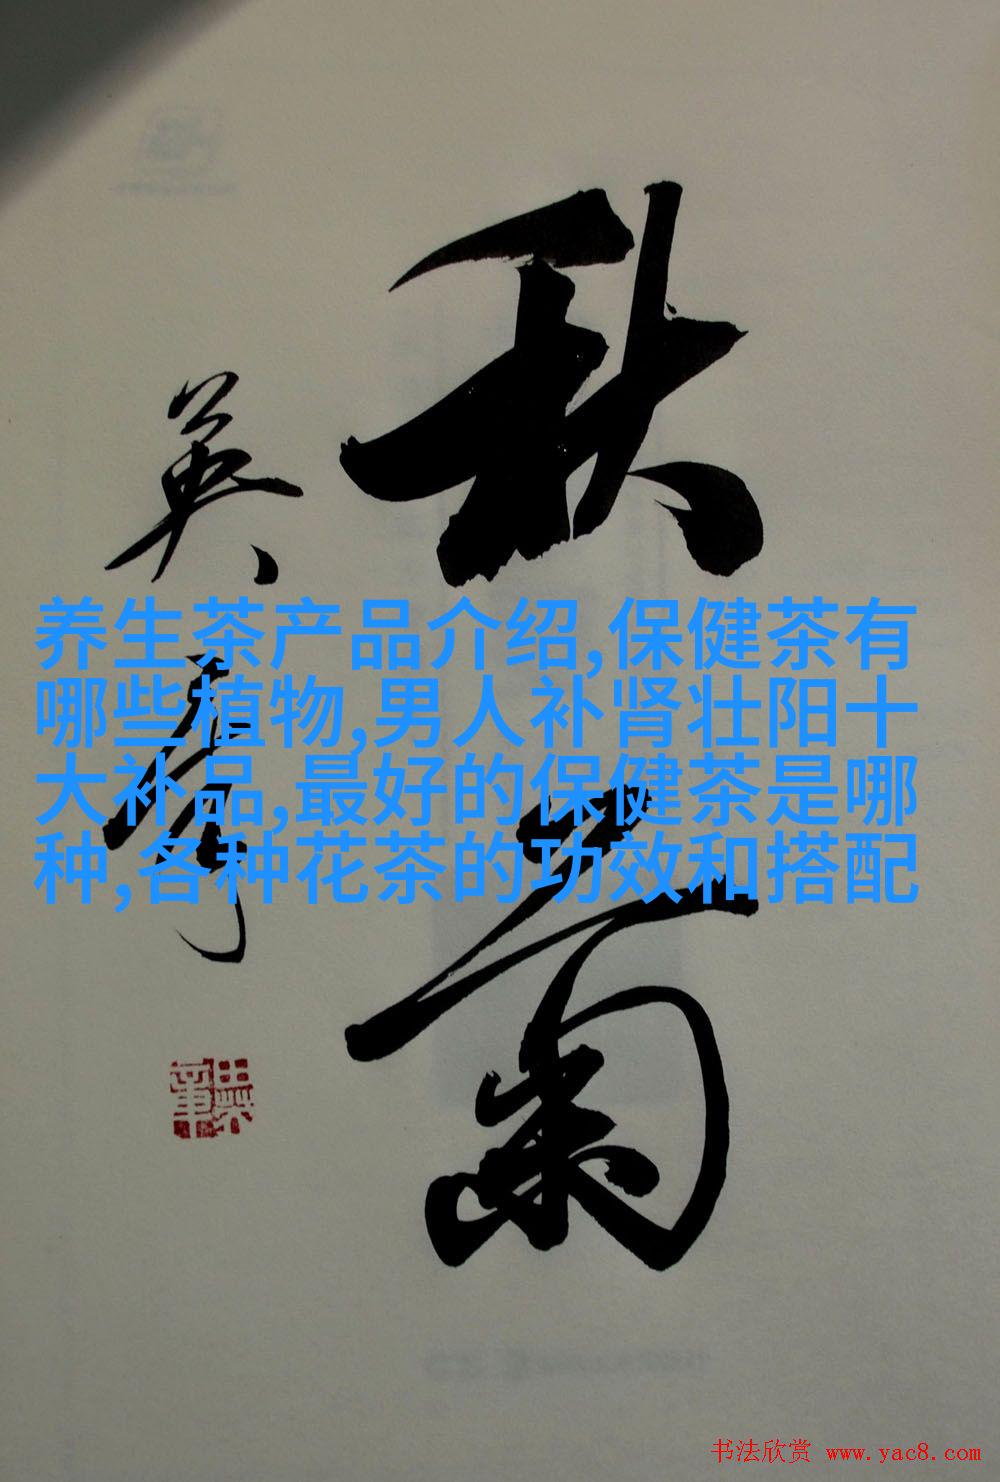 秋之菊
英章
养生茶产品介绍,保健茶有
哪些植物,男人补肾壮阳十
大补品,最好的保健茶是哪
种,各种花茶的功效和搭配
书法欣赏 www.yac8.com